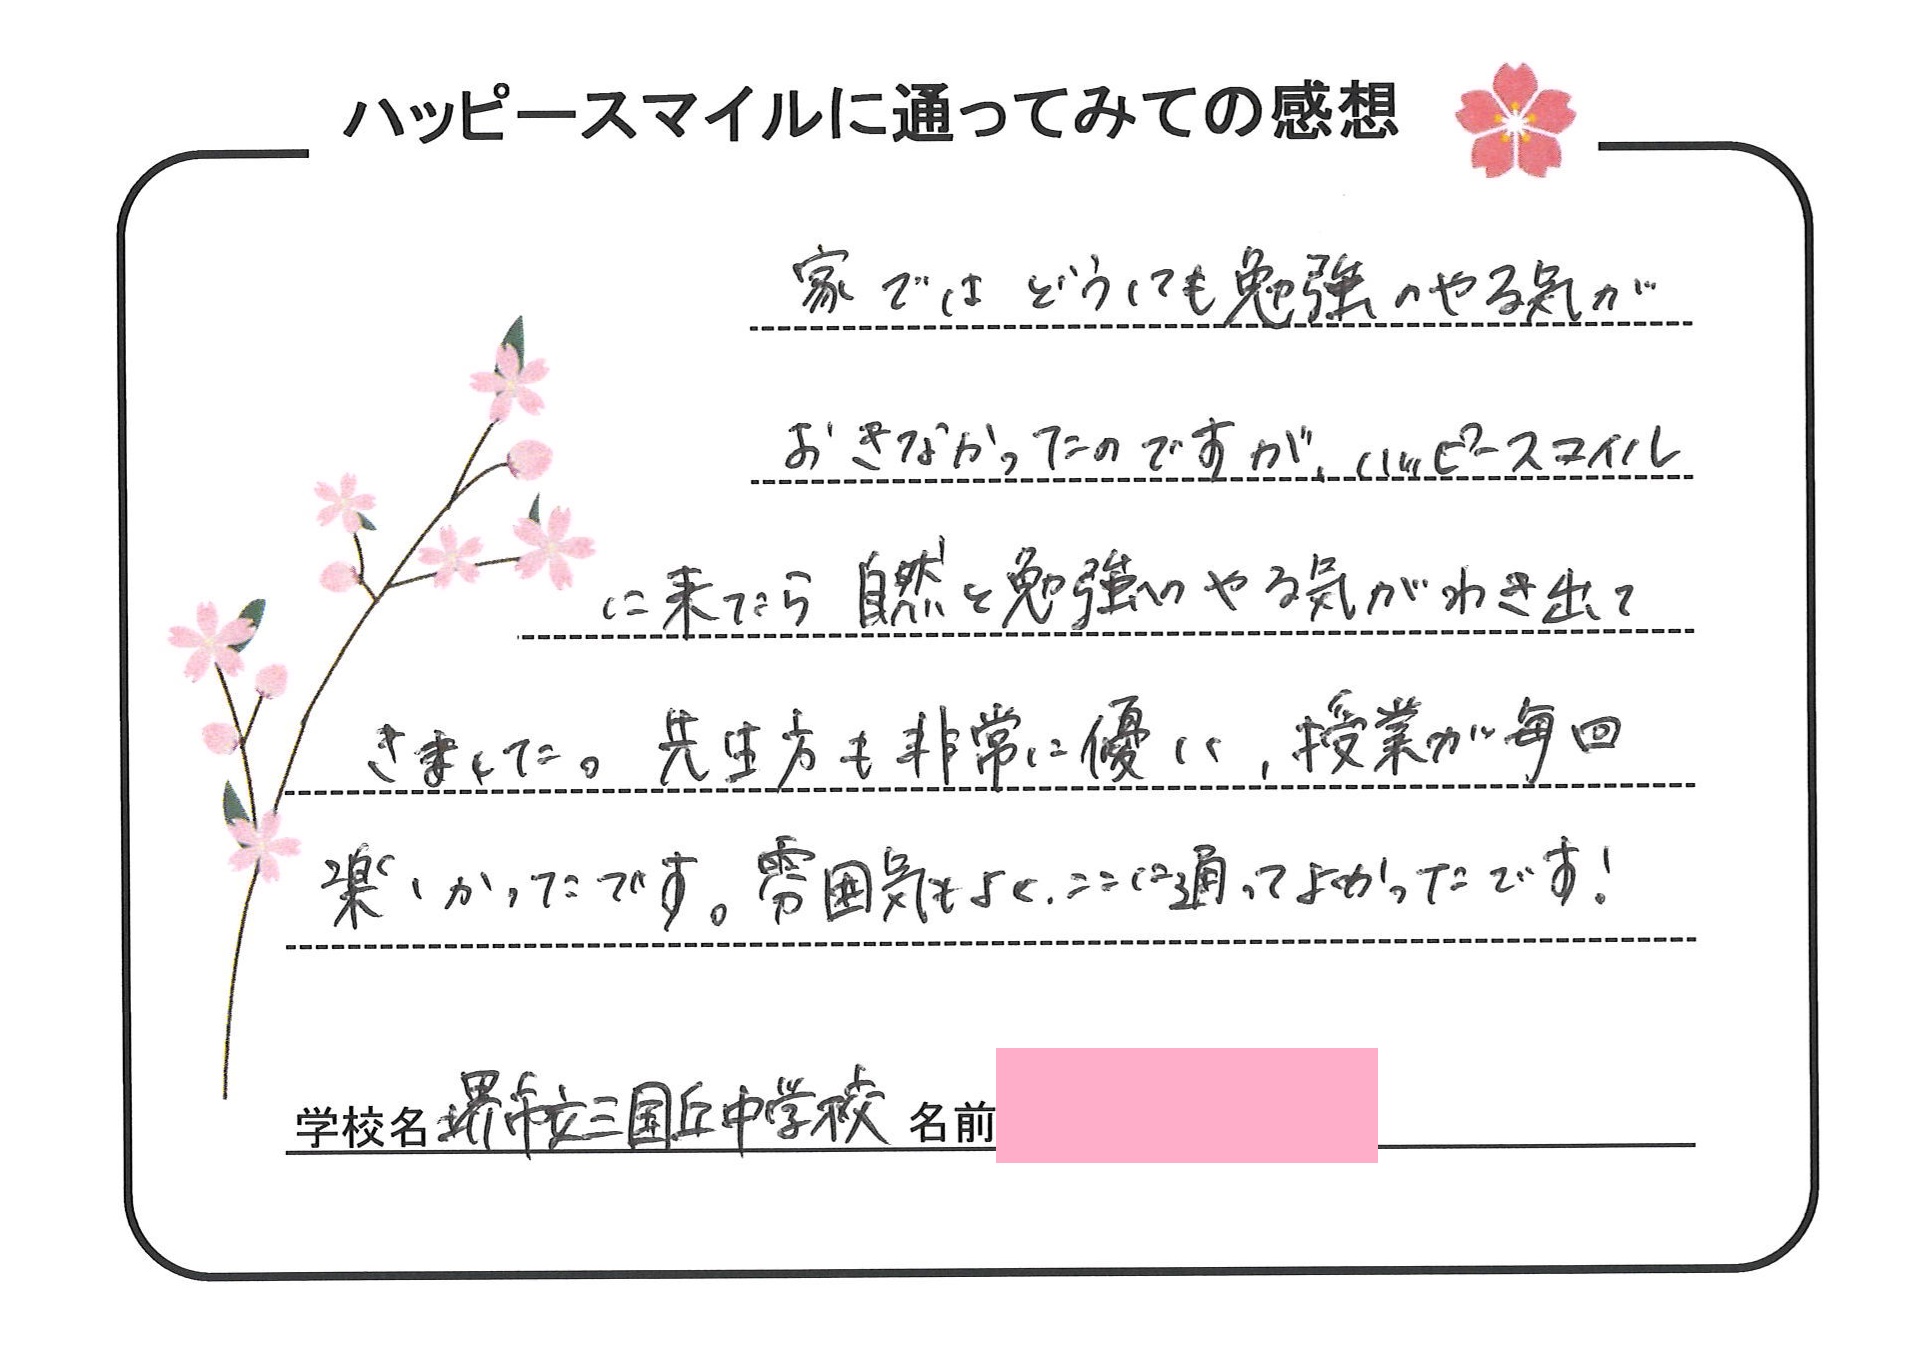 ハッピースマイルに通ってみての感想
家ではどうしても勉強のやる気が
おきなかったのですが、ハッピースマイル
に来たら自然と勉強へのやる気がわき出て
きました。先生方も非常に優しく、授業が毎回
楽しかったです。雰囲気もよく、ここに通ってよかったです!
学校名 堺市立三国丘中学校 名前